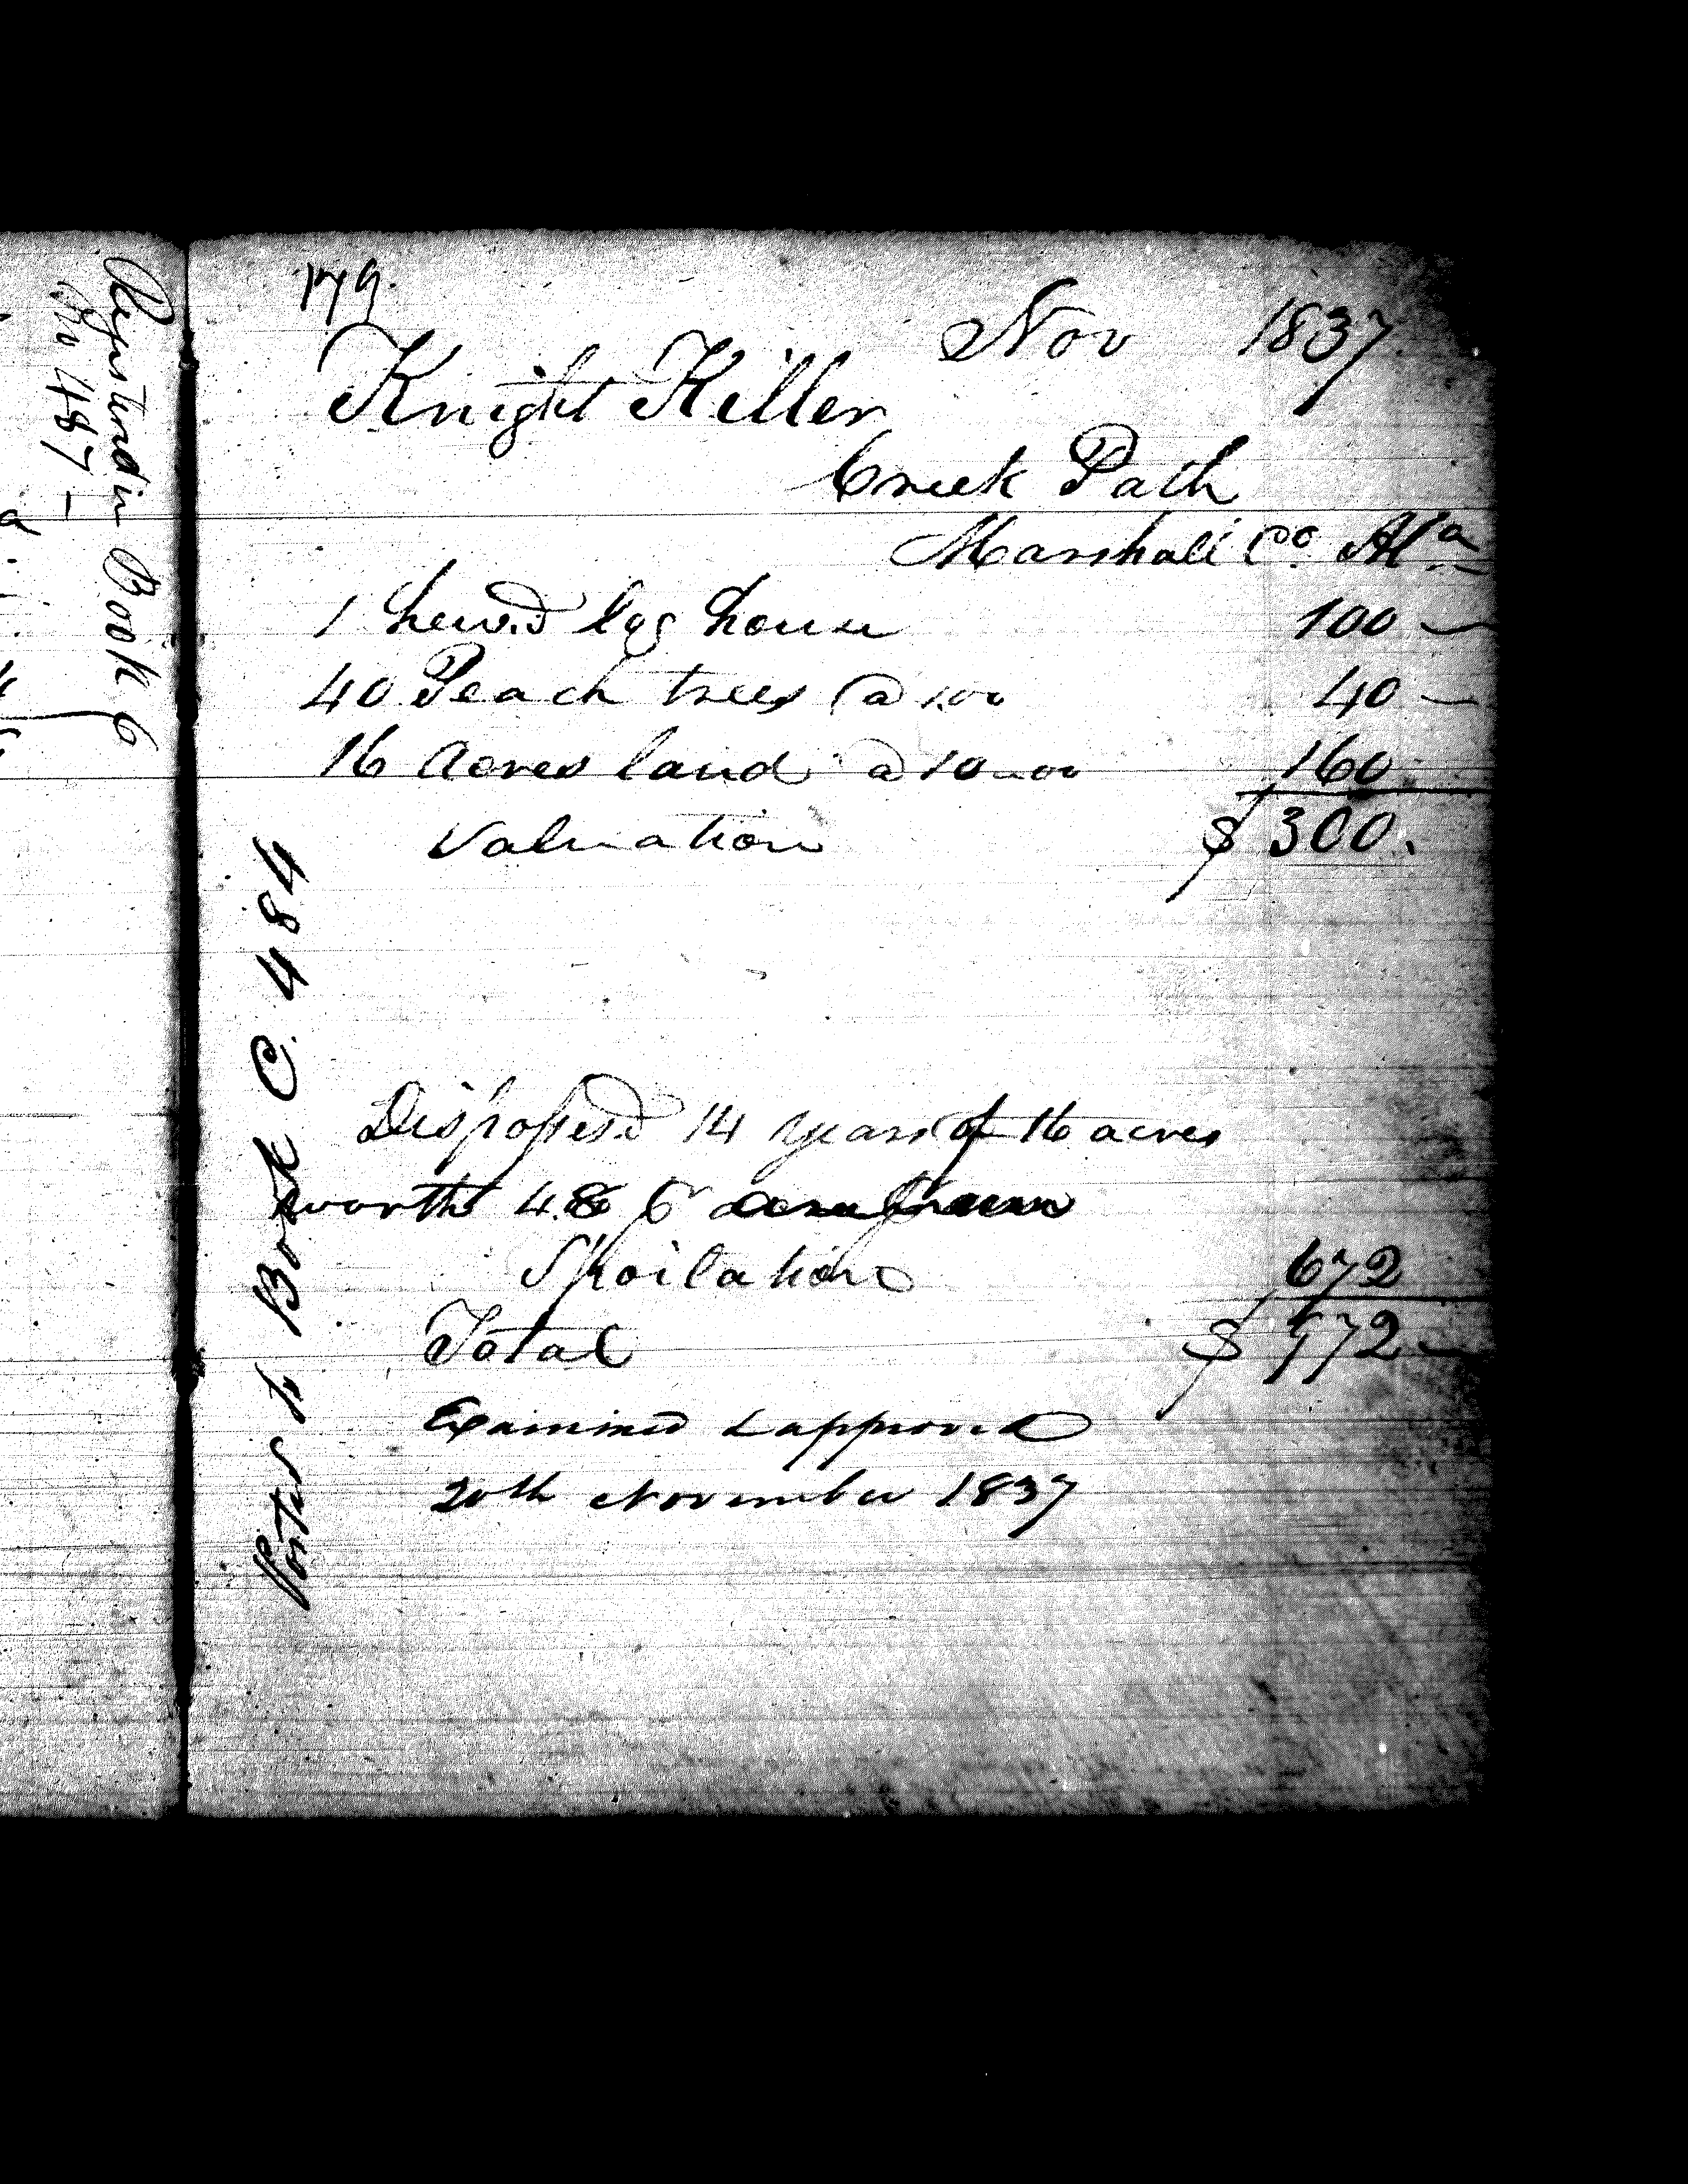 Registered in Book 6
No 487 –
179.
Nov 1837.
Knight Killer
Creek Path
Marshall Co. Ala
1 hew.d log house 100 –
40 Peach trees @ 1.00 40 –
16 acres land @ 10.00 160
Valuation $ 300.
Disposses.d 14 years of 16 acres
worth 48
Spoilation 672
Total $ 972 –
Examined & approved
20th November 1837
Posted to Book C. 484